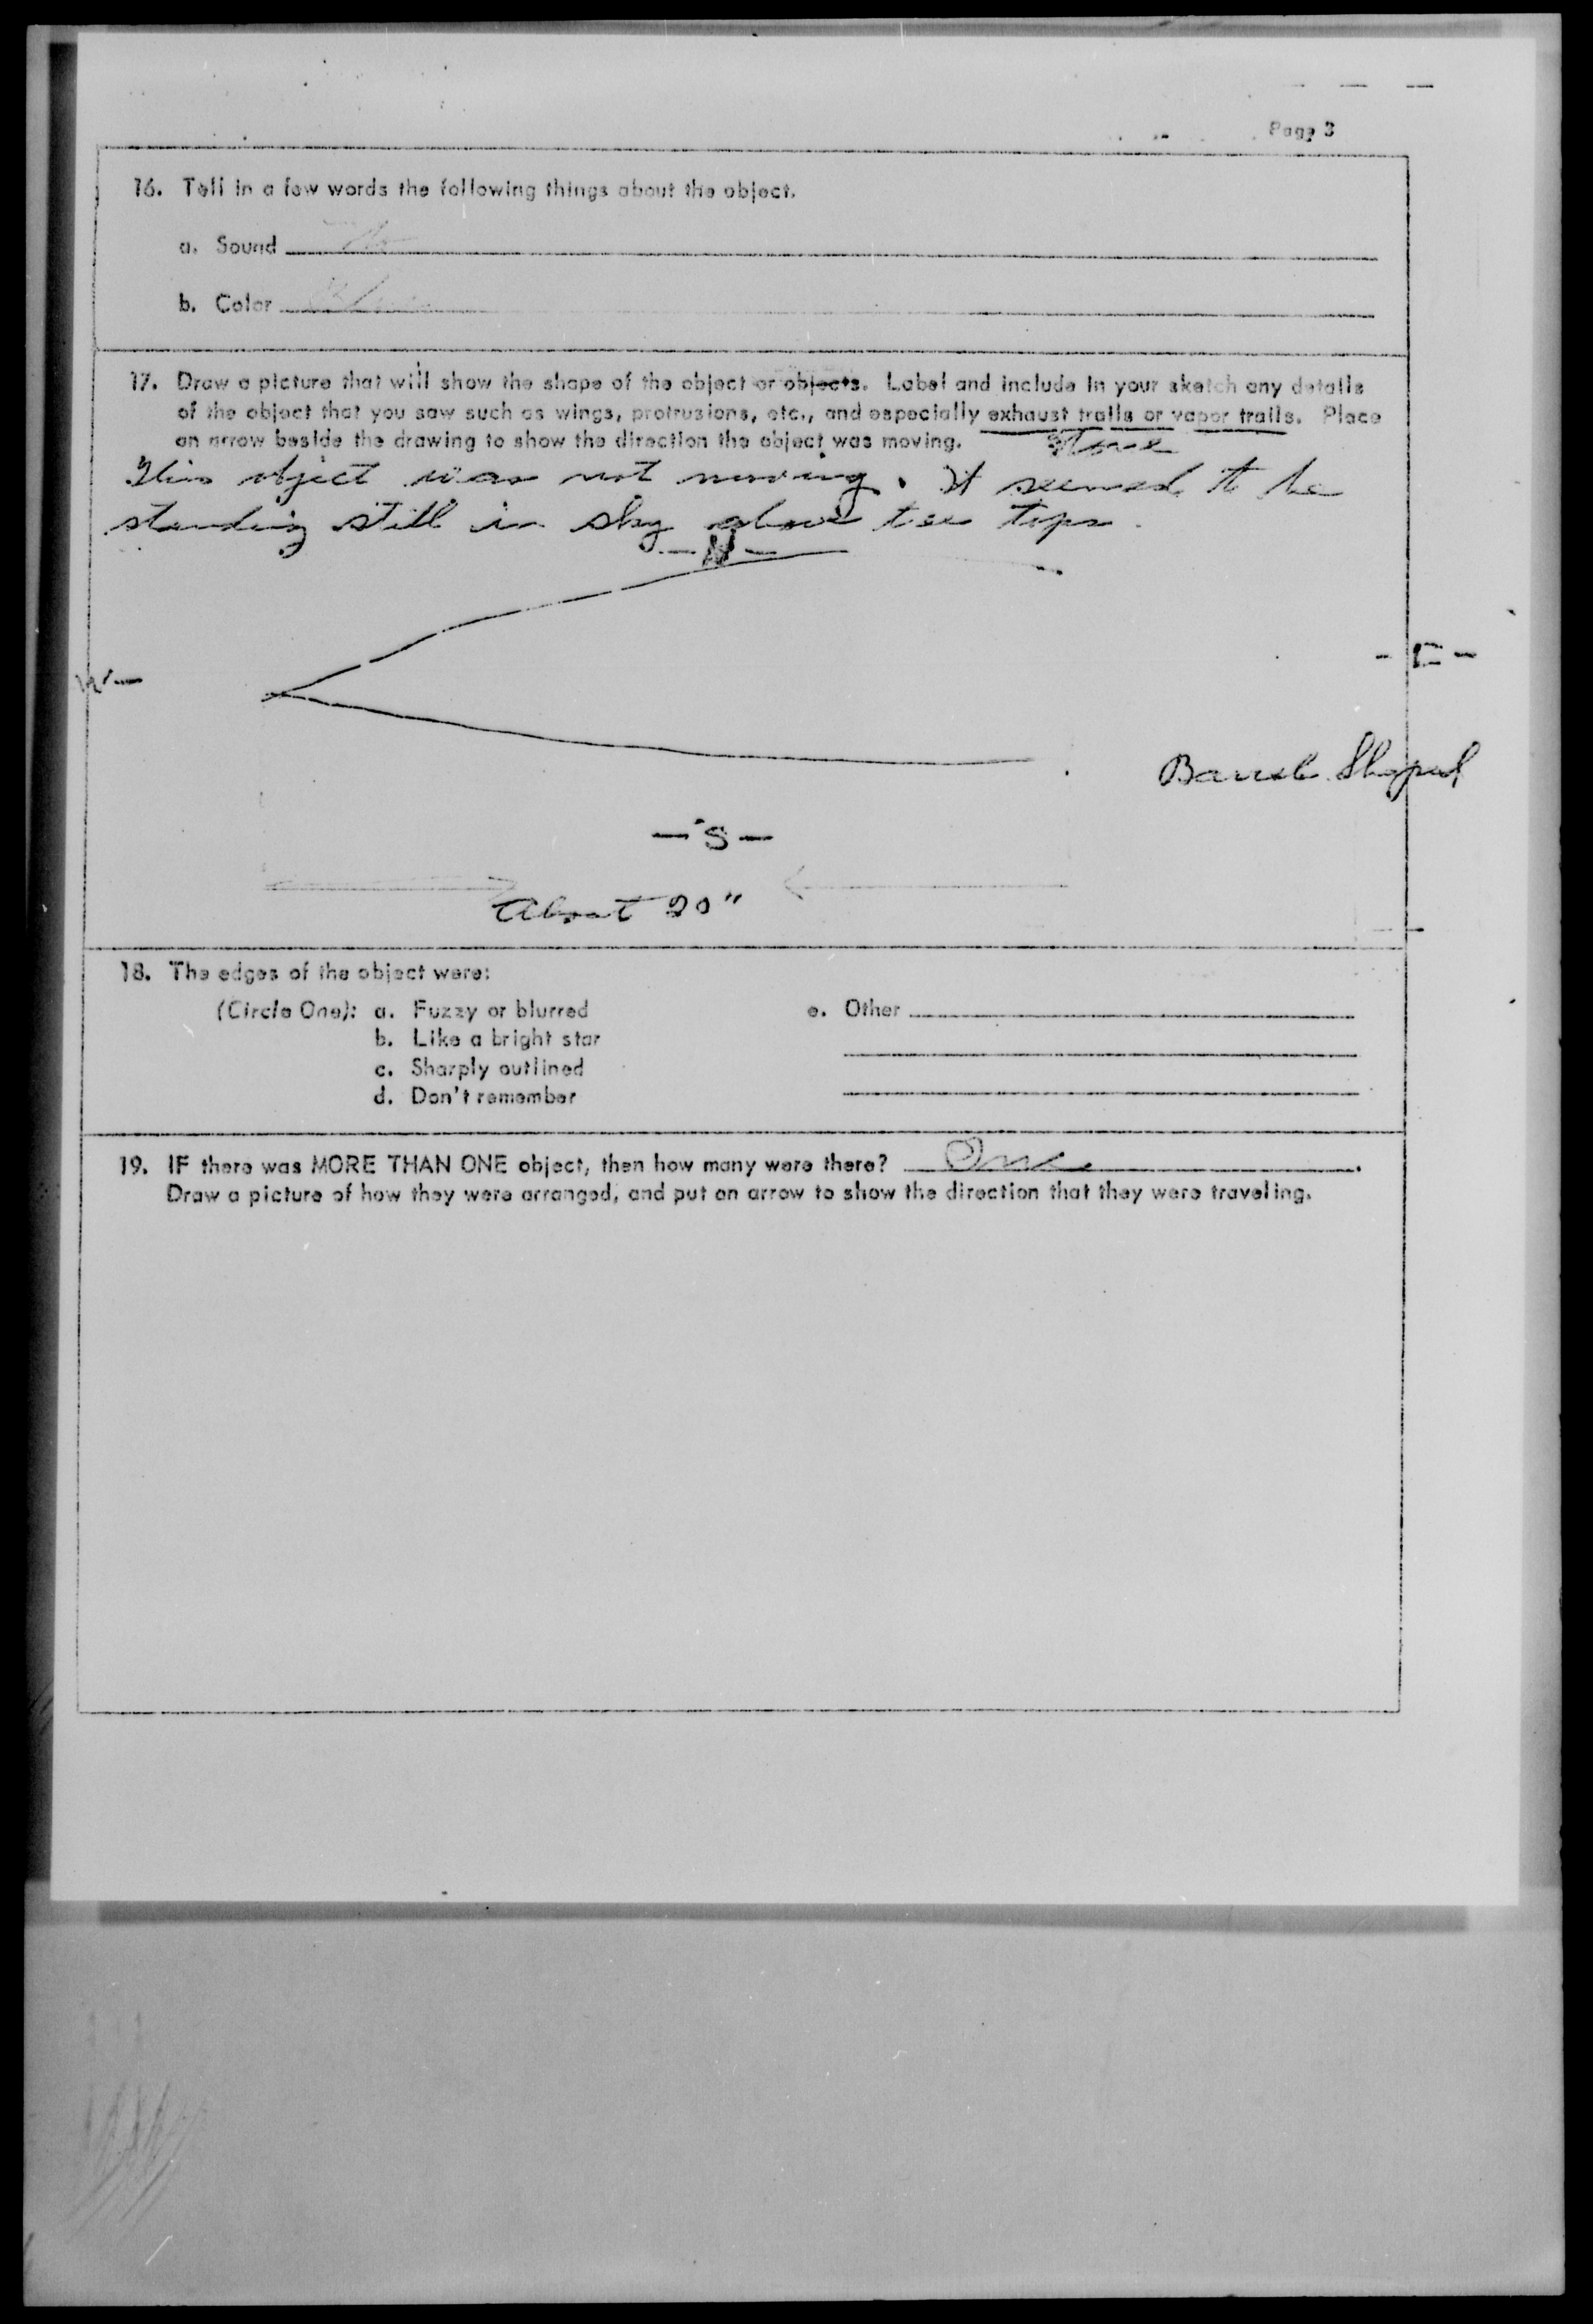 Page 3
16. Tell in a few words the following things about the object.
a. Sound No
b. Color Blue
17. Draw a picture that will show the shape of the object or objects. Label and include in your sketch any details
of the object that you saw such as wings, protrusions, etc., and especially exhaust trails or vapor trails. Place
an arrow beside the drawing to show the direction the object was moving. None
This object was not moving. It seemed to be
standing still in sky above tree tops.
- N -
W -
- E -
Barrel Shaped
- S -
About 20"
18. The edges of the object were:
(Circle One): a. Fuzzy or blurred
b. Like a bright star
c. Sharply outlined
d. Don't remember
e. Other
19. IF there was MORE THAN ONE object, then how many were there? One .
Draw a picture of how they were arranged, and put an arrow to show the direction that they were traveling.